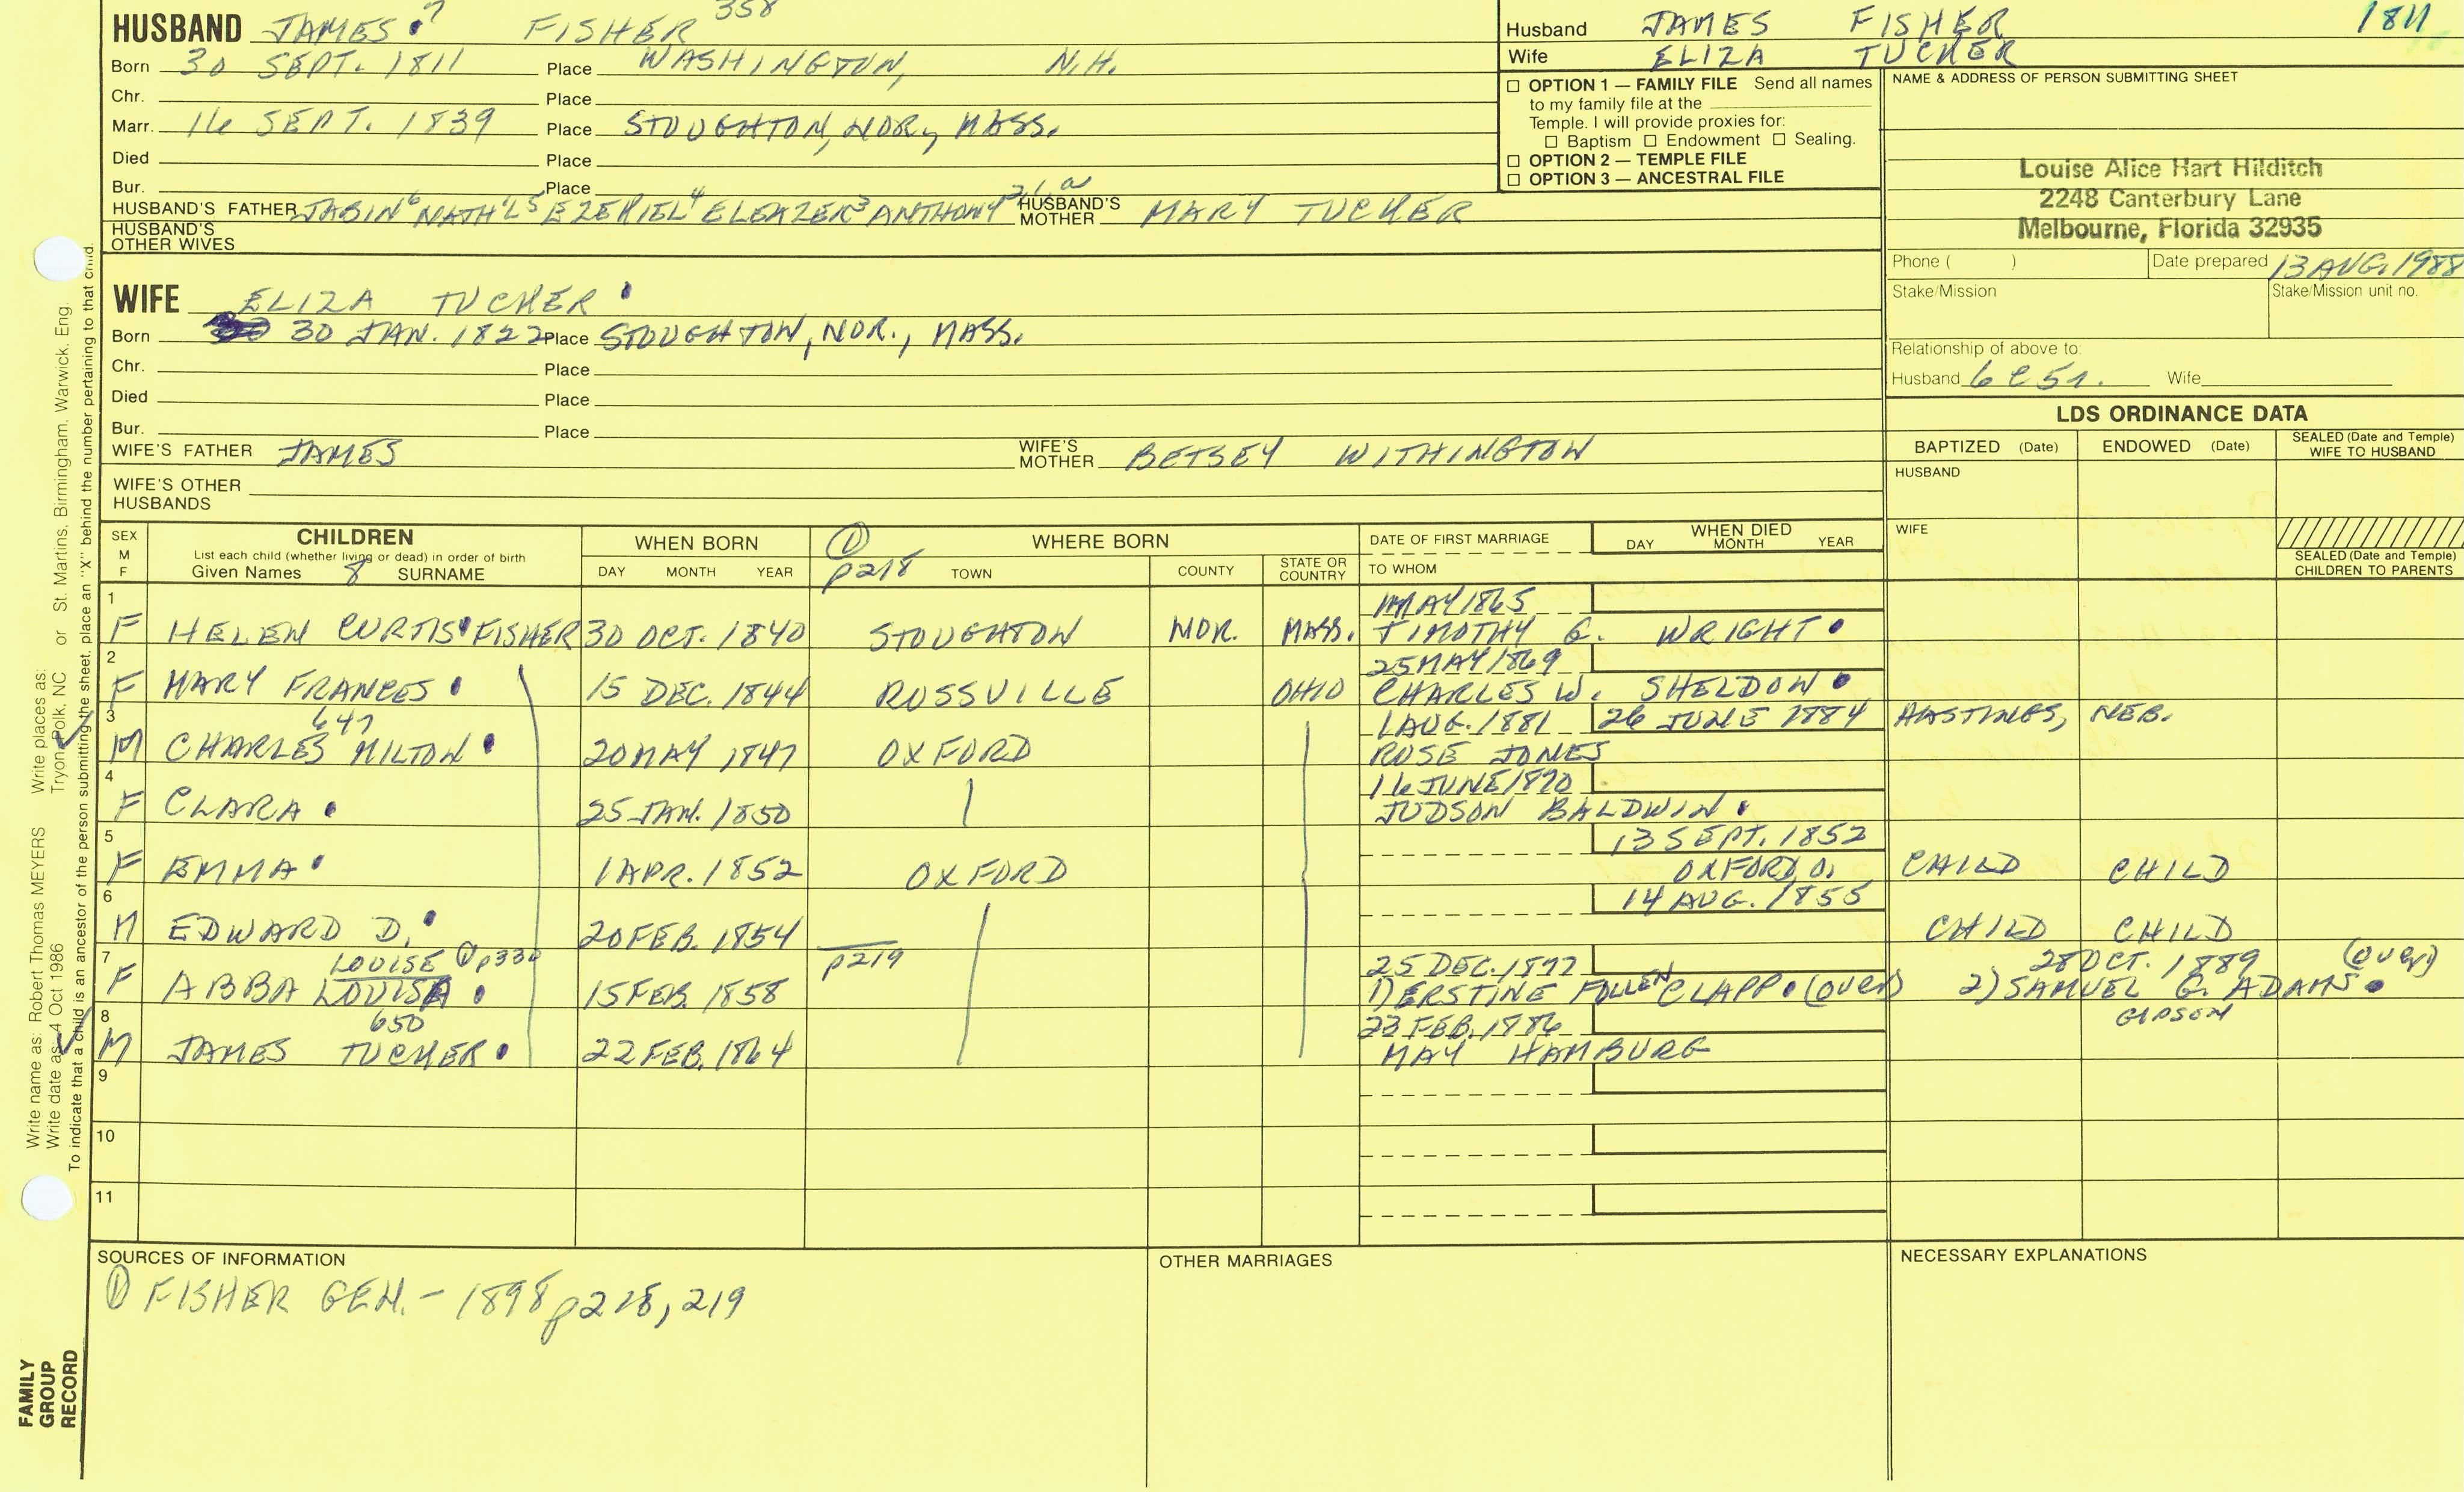 HUSBAND JAMES 7 FISHER 358
Born 30 SEPT. 1811 Place WASHINGTON, N.H.
Chr. Place
Marr. 16 SEPT. 1839 Place STOUGHTON, NOR., MASS.
Died Place
Bur. Place
HUSBAND'S FATHER JABIN6 NATH'L5 EZEKIEL4 ELEAZER3 ANTHONY2,1,a HUSBAND'S MOTHER MARY TUCKER
HUSBAND'S OTHER WIVES
WIFE ELIZA TUCKER
Born 30 JAN. 1822 Place STOUGHTON, NOR., MASS.
Chr. Place
Died Place
Bur. Place
WIFE'S FATHER JAMES WIFE'S MOTHER BETSEY WITHINGTON
WIFE'S OTHER HUSBANDS
Husband JAMES FISHER 1811
Wife ELIZA TUCKER
☐ OPTION 1 — FAMILY FILE Send all names
to my family file at the
Temple. I will provide proxies for:
☐ Baptism ☐ Endowment ☐ Sealing.
☐ OPTION 2 — TEMPLE FILE
☐ OPTION 3 — ANCESTRAL FILE
NAME & ADDRESS OF PERSON SUBMITTING SHEET
Louise Alice Hart Hilditch
2248 Canterbury Lane
Melbourne, Florida 32935
Phone ( ) Date prepared 13 AUG. 1988
Stake/Mission Stake/Mission unit no.
Relationship of above to:
Husband 6C5r. Wife
LDS ORDINANCE DATA
BAPTIZED (Date) ENDOWED (Date) SEALED (Date and Temple) WIFE TO HUSBAND
HUSBAND
WIFE
SEALED (Date and Temple) CHILDREN TO PARENTS
SEX M F CHILDREN WHEN BORN ① p218 WHERE BORN DATE OF FIRST MARRIAGE WHEN DIED
List each child (whether living or dead) in order of birth
Given Names 8 SURNAME DAY MONTH YEAR TOWN COUNTY STATE OR COUNTRY TO WHOM DAY MONTH YEAR
1 MAY 1865
F HELEN CURTIS FISHER 30 OCT. 1840 STOUGHTON NOR. MASS. TIMOTHY G. WRIGHT
2 25 MAY 1869
F MARY FRANCES 15 DEC. 1844 ROSSVILLE OHIO CHARLES W. SHELDON
3 647 1 AUG. 1881 26 JUNE 1884 HASTINGS, NEB.
M CHARLES MILTON 20 MAY 1847 OXFORD ROSE JONES
4 16 JUNE 1870
F CLARA 25 JAN. 1850 JUDSON BALDWIN
5 13 SEPT. 1852
F EMMA 1 APR. 1852 OXFORD OXFORD, O. CHILD CHILD
6 14 AUG. 1855
M EDWARD D. 20 FEB. 1854 CHILD CHILD
7 LOUISE ① p330 p219 25 DEC. 1877 28 OCT. 1889 (over)
F ABBA LOUISA 15 FEB. 1858 1) ERSTINE FOLLEN CLAPP (over) 2) SAMUEL G. ADAMS
GIPSON
8 650 23 FEB. 1886
M JAMES TUCKER 22 FEB. 1864 MAY HAMBURG
9
10
11
SOURCES OF INFORMATION OTHER MARRIAGES NECESSARY EXPLANATIONS
① FISHER GEN. - 1898 p218, 219
Write name as: Robert Thomas MEYERS Write places as: Tryon, Polk, NC or St. Martins, Birmingham, Warwick, Eng
Write date as: 4 Oct 1986
To indicate that a child is an ancestor of the person submitting the sheet, place an "X" behind the number pertaining to that child.
FAMILY
GROUP
RECORD